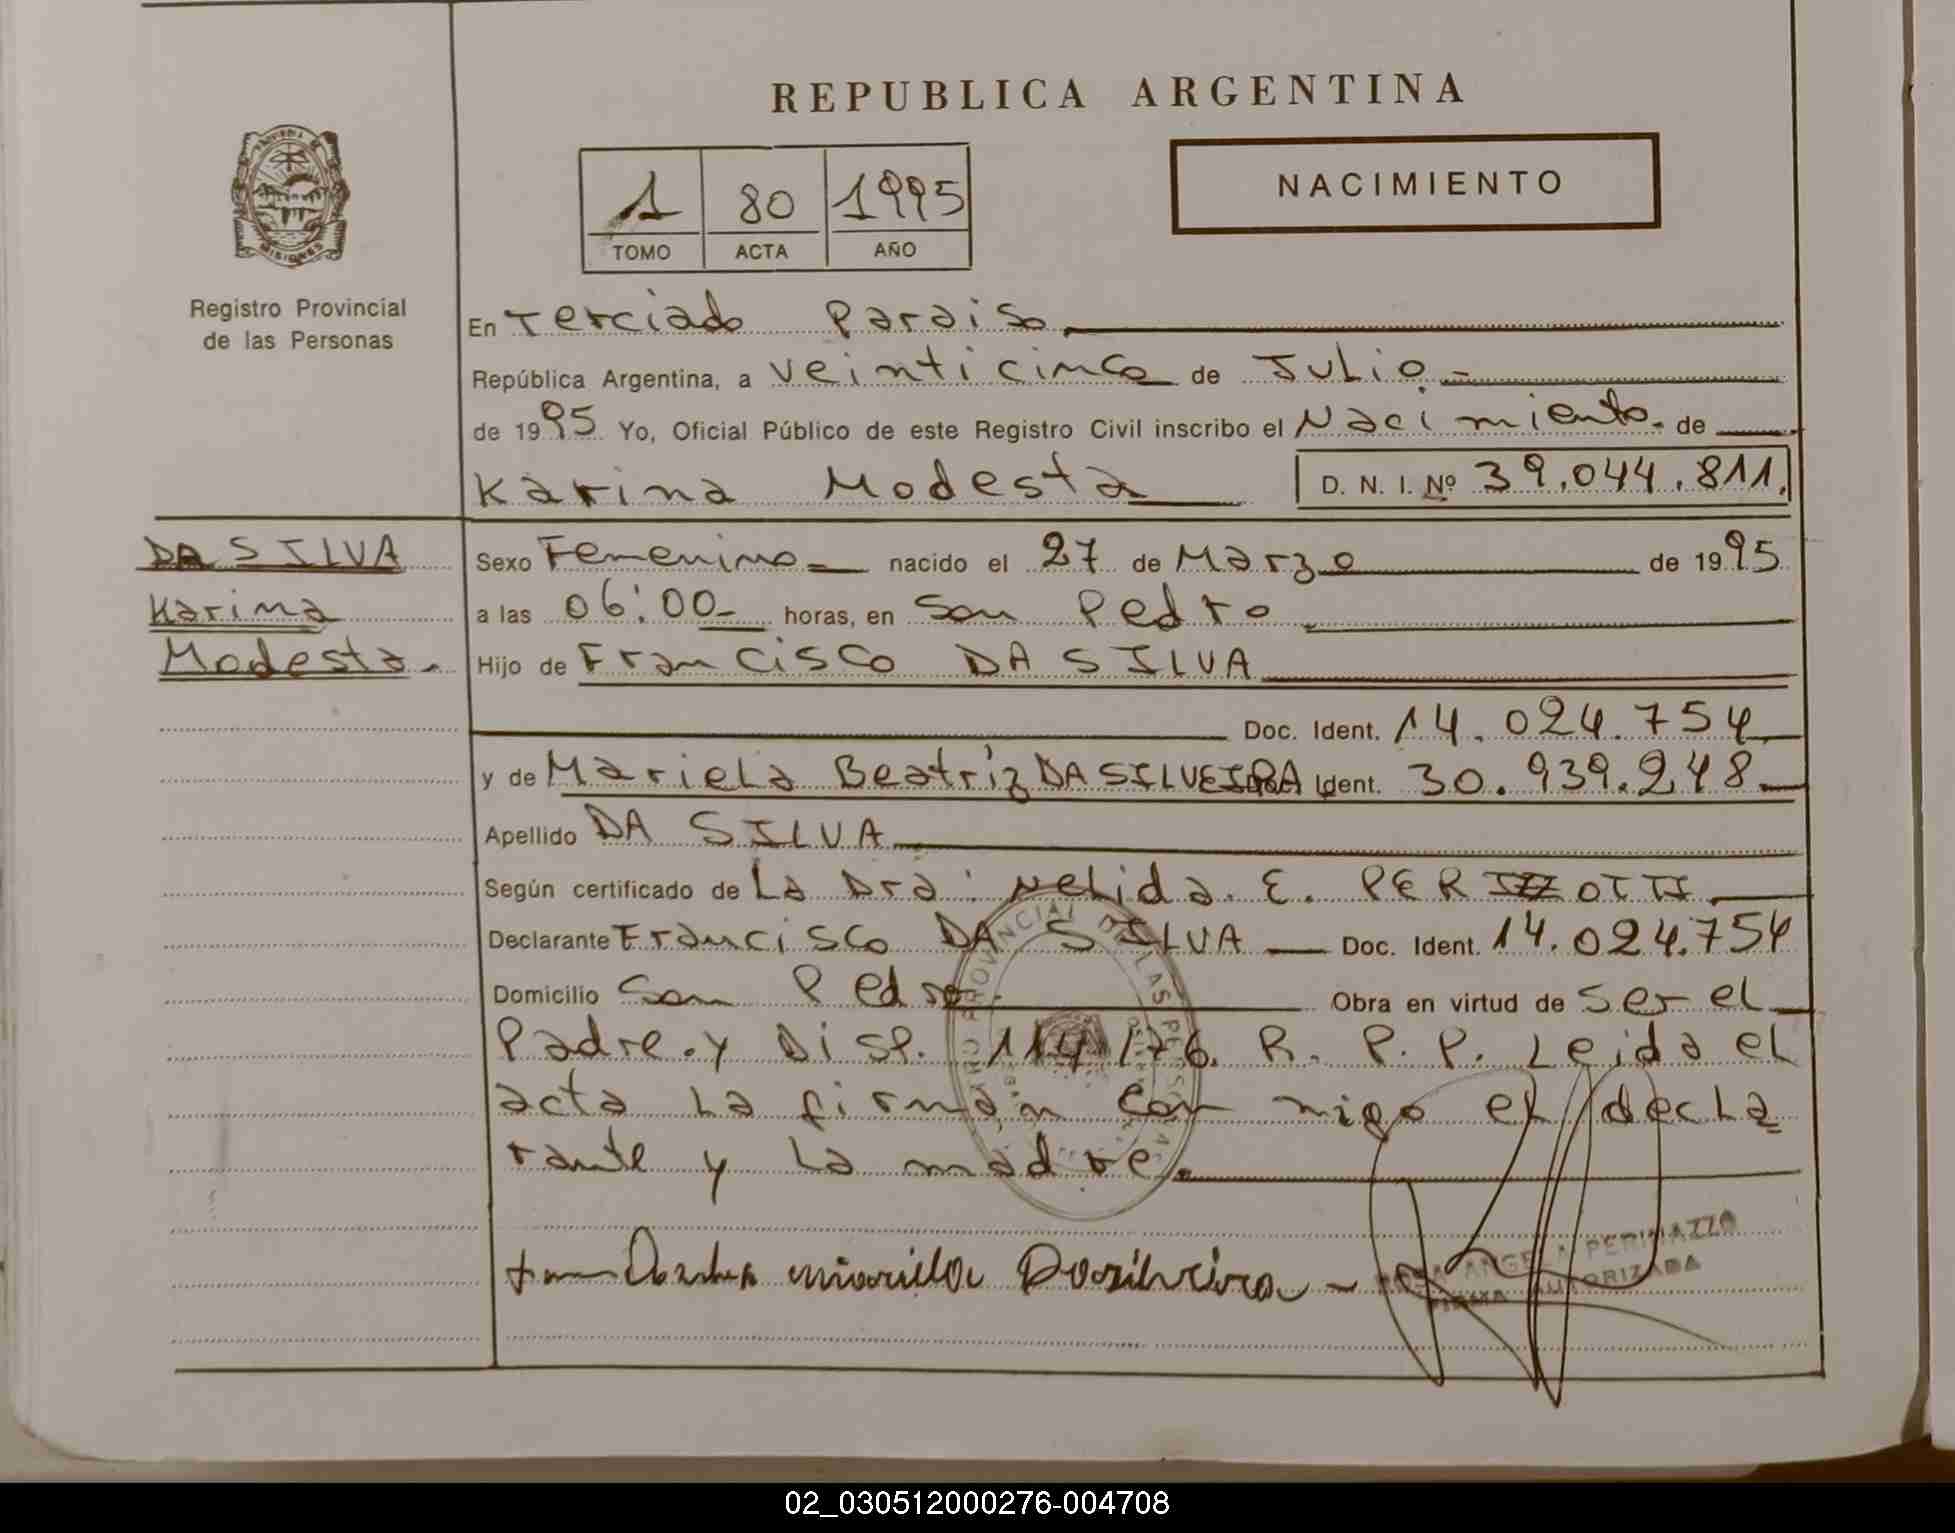 REPUBLICA ARGENTINA
NACIMIENTO
1 80 1995
TOMO ACTA AÑO
MISIONES
Registro Provincial
de las Personas
En Terciado Paraiso
República Argentina, a veinticinco de Julio.-
de 1995 Yo, Oficial Público de este Registro Civil inscribo el Nacimiento. de
Karina Modesta D. N. I. Nº 39.044.811.
DA SILVA
Karina
Modesta.
Sexo Femenino nacido el 27 de Marzo de 1995
a las 06:00 horas, en San Pedro
Hijo de Francisco DA SILVA
Doc. Ident. 14.024.754
y de Mariela Beatríz DA SILVEIRA Doc. Ident. 30.939.248
Apellido DA SILVA
Según certificado de La Dra: Nelida. E. PERIZZOTTI
Declarante Francisco DA SILVA Doc. Ident. 14.024.754
Domicilio San Pedro. Obra en virtud de ser el
Padre.y Disp. 114/76. R. P. P. Leida el
acta la firmán con migo el decla
rante y la madre.
mariela Dasilveira -
ROSA ANGELA PERINAZZO
FIRMA AUTORIZADA
02_030512000276-004708